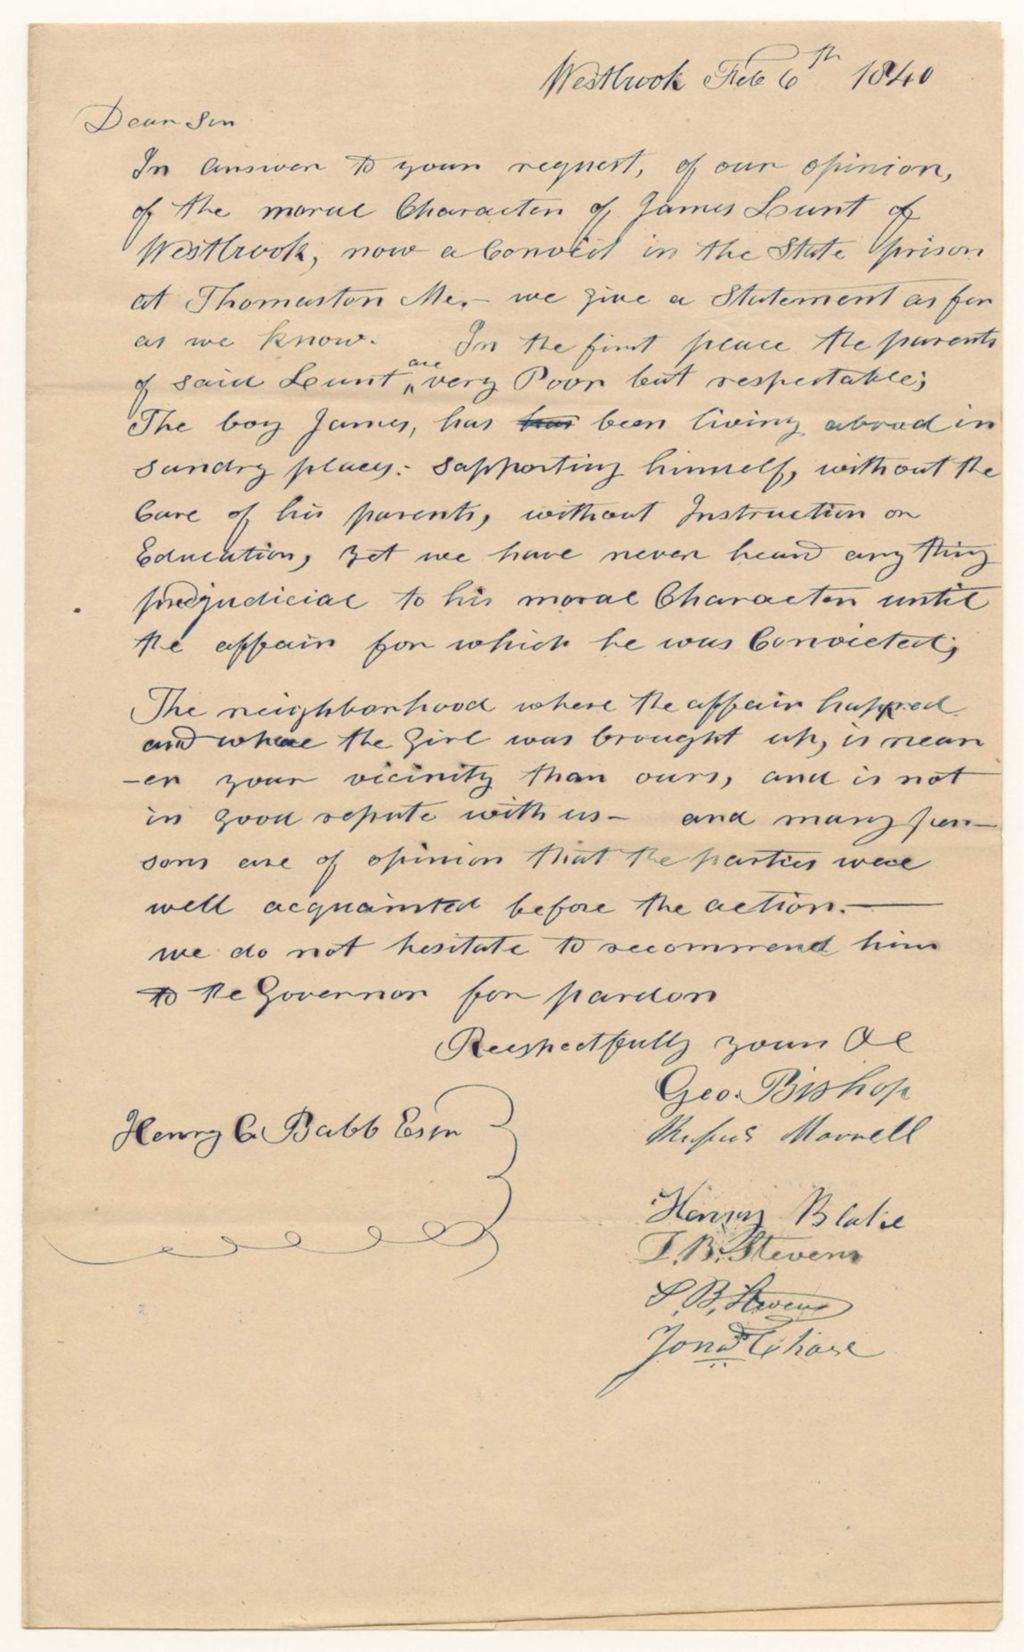 Westbrook Feb 6th 1840
Dear Sir
In answer to your request, of our opinion,
of the moral Character of James Lunt of
Westbrook, now a Convict in the State prison
at Thomaston Me. – we give a Statement as far
as we know. In the first place the parents
of said Lunt are very Poor but respectable;
The boy James, has has been living abroad in
sundry places: supporting himself, without the
Care of his parents, without Instruction or
Education, yet we have never heard any thing
predjudicial to his moral Character until
the affair for which he was Convicted;
The neighborhood where the affair happned
and where the Girl was brought up, is near
-er your vicinity than ours, and is not
in good repute with us – and many per–
sons are of opinion that the parties were
well acquainted before the action. —
we do not hesitate to recommend him
to the Governor for pardon
Respectfully yours &c
Geo. Bishop
Henry C. Babb Esqr
Rufus Morrell
Henry Blake
T. B. Stevens
S. B. Stevens
Jona Chase